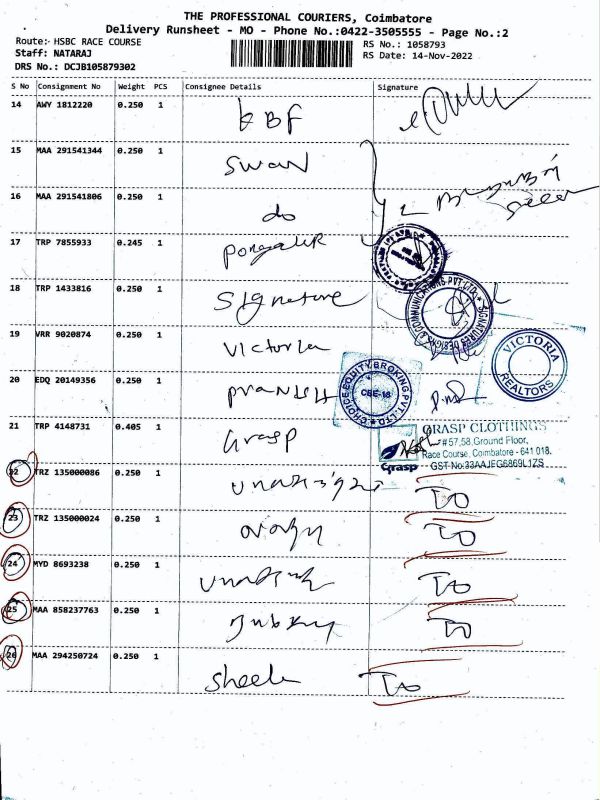 THE PROFESSIONAL COURIERS, Coimbatore
Delivery Runsheet - MO - Phone No.:0422-3505555 - Page No.:2
Route:- HSBC RACE COURSE
RS No.: 1058793
Staff: NATARAJ
RS Date: 14-Nov-2022
DRS No.: DCJB105879302
S No Consignment No Weight PCS Consignee Details Signature
14 AWY 1812220 0.250 1 KBF
15 MAA 291541344 0.250 1 Swan
16 MAA 291541806 0.250 1 do
17 TRP 7855933 0.245 1
18 TRP 1433816 0.250 1 Signature
SIGNATURES DESIGNS & COMMUNICATIONS PVT. LTD.
19 VRR 9020874 0.250 1 Victoria
VICTORIA REALTORS
20 EDQ 20149356 0.250 1
CHOICE EQUITY BROKING PVT. LTD.
CBE-18
21 TRP 4148731 0.405 1 Grasp
GRASP CLOTHINGS
#57,58,Ground Floor,
Race Course, Coimbatore - 641 018.
GST-No:33AAJEG6869L1ZS
Grasp
22 TRZ 135000086 0.250 1 TO
23 TRZ 135000024 0.250 1 TO
24 MYD 8693238 0.250 1 TO
25 MAA 858237763 0.250 1 TO
26 MAA 294250724 0.250 1 Sheela TO